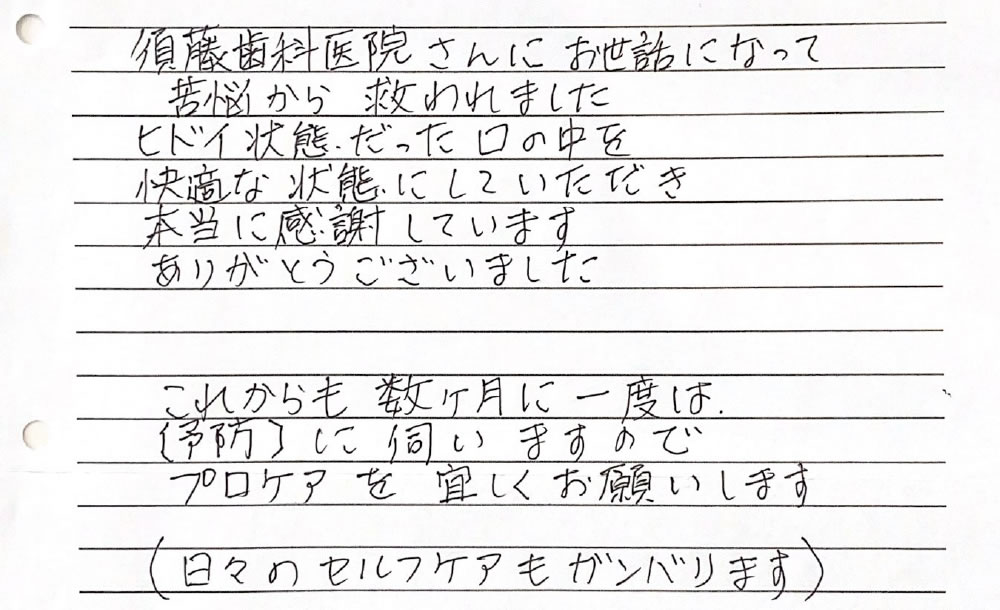 須藤歯科医院さんにお世話になって
苦悩から救われました
ヒドイ状態だった口の中を
快適な状態にしていただき
本当に感謝しています
ありがとうございました
これからも数ヶ月に一度は
〔予防〕に伺いますので
プロケアを宜しくお願いします
(日々のセルフケアもガンバリます)